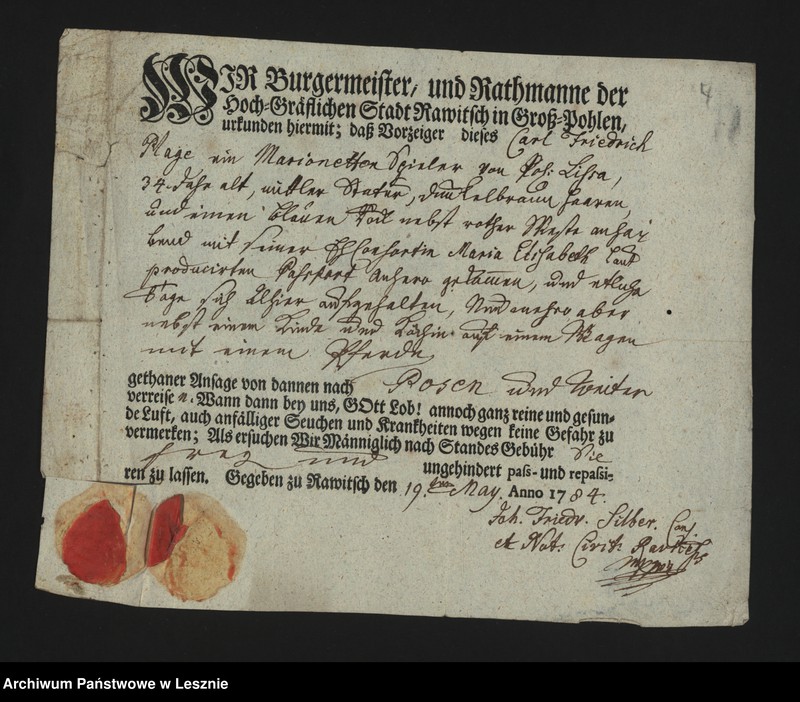 WIR Burgermeister, und Rathmanne der
Hoch-Gräflichen Stadt Rawitsch in Groß-Pohlen,
urkunden hiermit; daß Vorzeiger dieses Carl Friedrich
Plage ein Marionetten Spieler von Pohl: Lissa,
34. Jahr alt, mittler Statur, dunckelbraun haaren,
und einen blauen Rock nebst rother Weste anha-
bend mit seiner Ehe Consortin Maria Elisabeth laut
producirten Paßport anhero gekommen, und etliche
Tage sich allhier aufgehalten, Nunmehro aber
nebst einem Kinde und auf einem Wagen
mit einem Pferde
gethaner Ansage von dannen nach Posen und weiter
verreise n. Wann dann bey uns, GOtt Lob! annoch ganz reine und gesun-
de Luft, auch anfälliger Seuchen und Krankheiten wegen keine Gefahr zu
vermerken; Als ersuchen Wir Männiglich nach Standes Gebühr Sie
frey und ungehindert paß- und repaßi-
ren zu lassen. Gegeben zu Rawitsch den 19. ten May. Anno 1784.
Joh. Friedr. Silber. Conf
et Not: Civit: Rav
4
Archiwum Państwowe w Lesznie